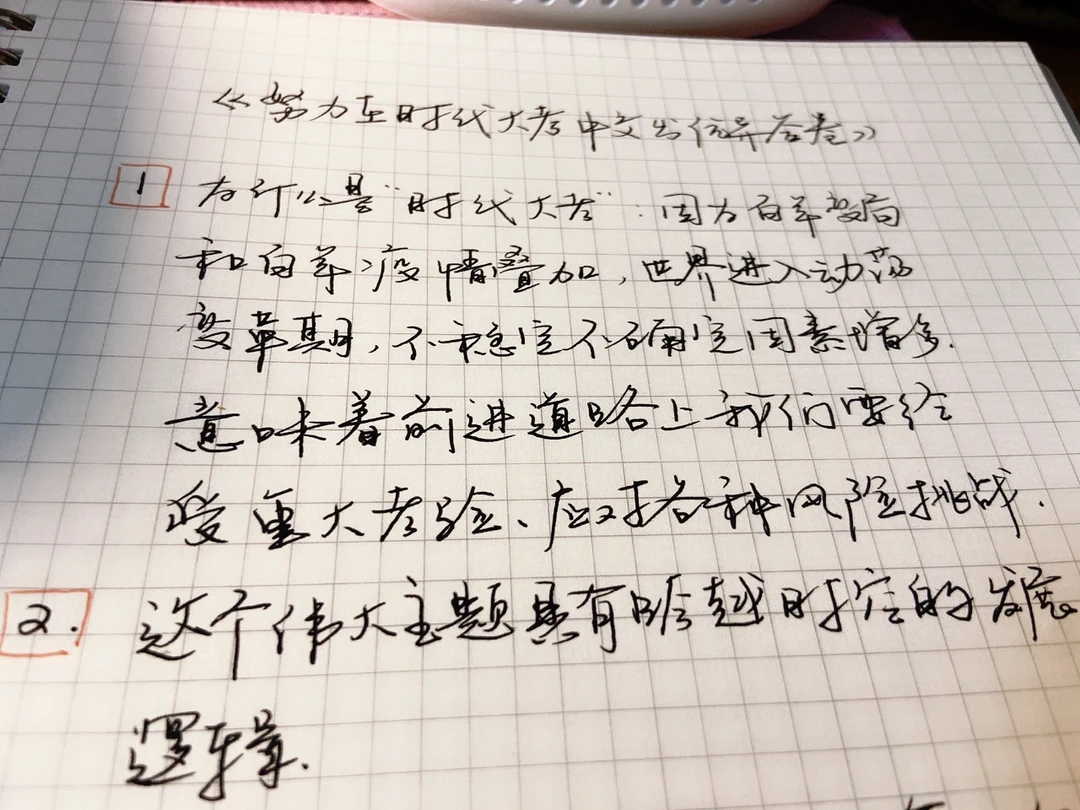 《努力在时代大考中交出优异答卷》
1 为什么是“时代大考”：因为百年变局
和百年疫情叠加，世界进入动荡
变革期，不稳定不确定因素增多.
意味着前进道路上我们要经
受重大考验、应对各种风险挑战.
2. 这个伟大主题具有跨越时空的发展
逻辑.